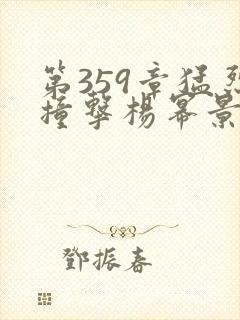 第359章猛烈
撞擊楊冪景
鄧振春